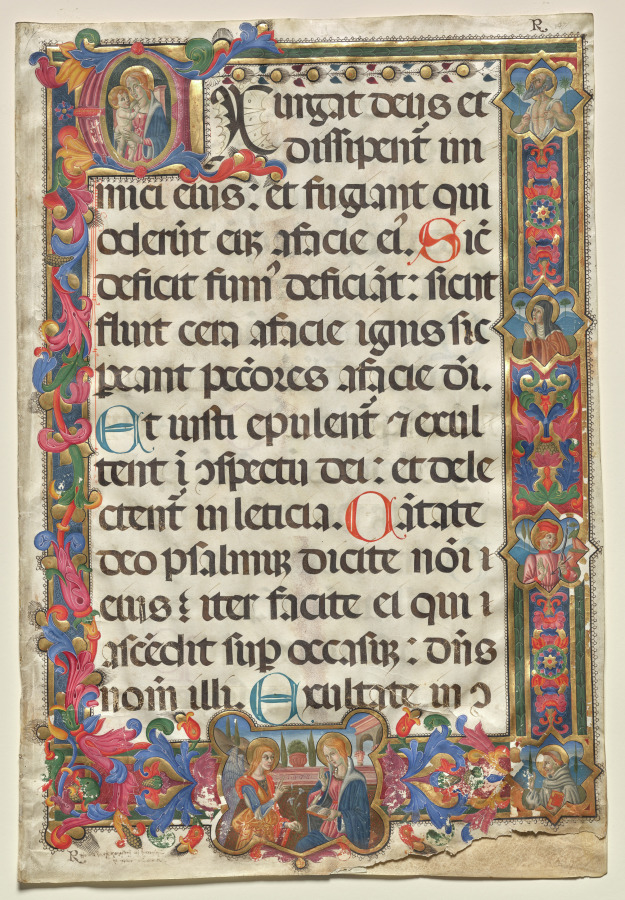 R
EXurgat deus et
dissipent̃ ini
mici eius: et fugiant qui
oderūt eūꝫ afacie ei᾽. Sic̄
deficit fum᾽ deficiāt: sicut
fluit cera afacie ignis sic
peant pcc̄ores afacie dēi.
Et iusti epulent̃ ⁊ exul
tent ī ↄspectu dei: et dele
ctent̃ in leticia. Cātate
deo psalmuꝫ dicite nōi i
eius: iter facite ei qui i
ascēdit sup occasuꝫ: dn̄s
nom̄ illi. Exultate in ↄ
R